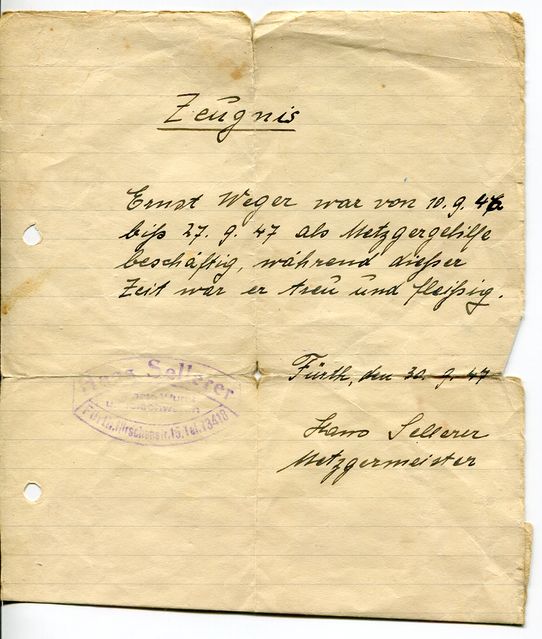 Zeugnis
Ernst Weger war von 10. 9. 46
biß 27. 9. 47 als Metzgergehilfe
beschäftig, während dießer
Zeit war er treu und fleißig.
Fürth, den 30. 9. 47
Hans Sellerer
Metzgermeister
Hans Sellerer
Fürth, Hirschenstr. 15, Tel. 73410